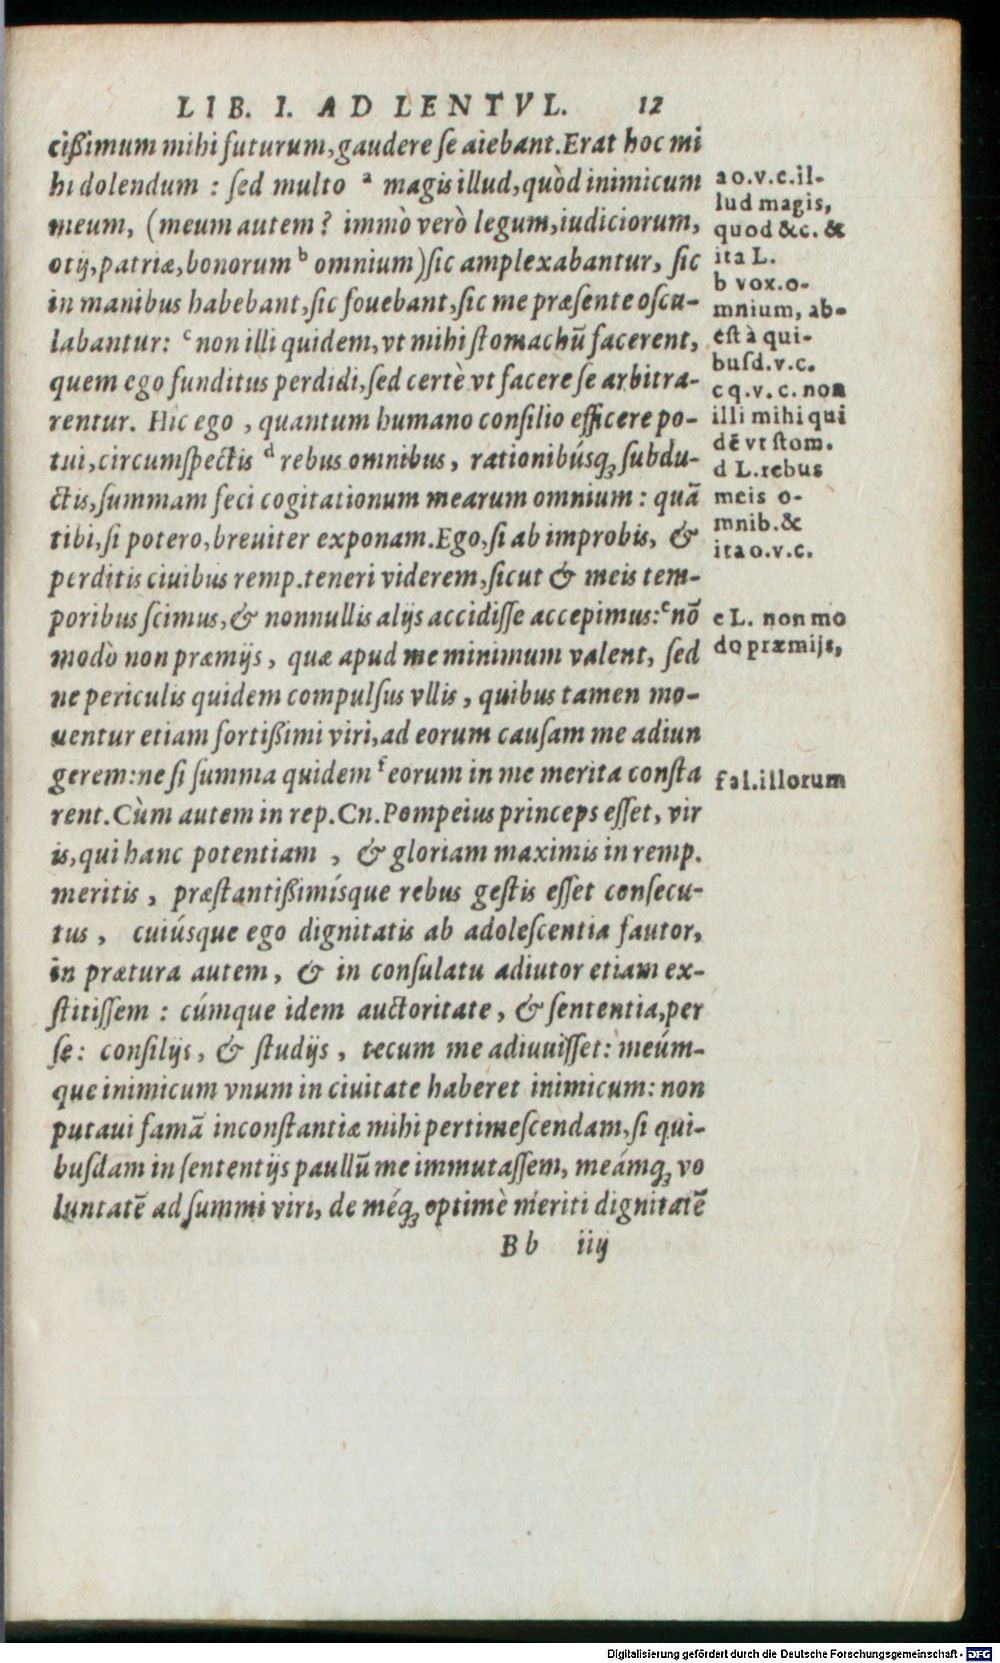 LIB. I. AD LENTVL. 12
cißimum mihi futurum, gaudere se aiebant. Erat hoc mi
hi dolendum : sed multo ᵃ magis illud, quòd inimicum
meum, (meum autem? immò verò legum, iudiciorum,
otij, patriæ, bonorum ᵇ omnium) sic amplexabantur, sic
in manibus habebant, sic fouebant, sic me præsente oscu-
labantur: ᶜ non illi quidem, vt mihi stomachũ facerent,
quem ego funditus perdidi, sed certè vt facere se arbitra-
rentur. Hic ego , quantum humano consilio efficere po-
tui, circumspectis ᵈ rebus omnibus , rationibúsqꝫ subdu-
ctis, summam feci cogitationum mearum omnium : quã
tibi, si potero, breuiter exponam. Ego, si ab improbis, &
perditis ciuibus remp. teneri viderem, sicut & meis tem-
poribus scimus, & nonnullis alijs accidisse accepimus: ᵉ nõ
modò non præmijs , quæ apud me minimum valent, sed
ne periculis quidem compulsus vllis , quibus tamen mo-
uentur etiam fortißimi viri, ad eorum causam me adiun
gerem: ne si summa quidem ᶠ eorum in me merita consta
rent. Cùm autem in rep. Cn. Pompeius princeps esset, vir
is, qui hanc potentiam , & gloriam maximis in remp.
meritis , præstantißimísque rebus gestis esset consecu-
tus , cuiúsque ego dignitatis ab adolescentia fautor,
in prætura autem , & in consulatu adiutor etiam ex-
stitissem : cúmque idem auctoritate , & sententia, per
se: consilijs , & studijs , tecum me adiuuisset: meúm-
que inimicum vnum in ciuitate haberet inimicum: non
putaui famã inconstantiæ mihi pertimescendam, si qui-
busdam in sententijs paullũ me immutassem, meámqꝫ vo
luntatẽ ad summi viri, de méqꝫ optimè meriti dignitatẽ
Bb iiij
a o.v.c.il-
lud magis,
quod &c. &
ita L.
b vox.o-
mnium, ab-
est à qui-
busd.v.c.
c q.v.c. non
illi mihi qui
dẽ vt stom.
d L.rebus
meis o-
mnib.&
ita o.v.c.
e L. non mo
do præmijs,
f al.illorum
Digitalisierung gefördert durch die Deutsche Forschungsgemeinschaft - DFG